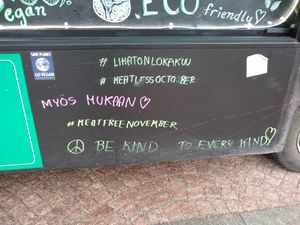 vegan
ECO
friendly
SAVE PLANET
GO VEGAN
# LIHATONLOKAKUU
# MEATLESSOCTOBER
MYÖS MUKAAN♡
#MEATFREENOVEMBER
☮ BE KIND TO EVERY KIND♡